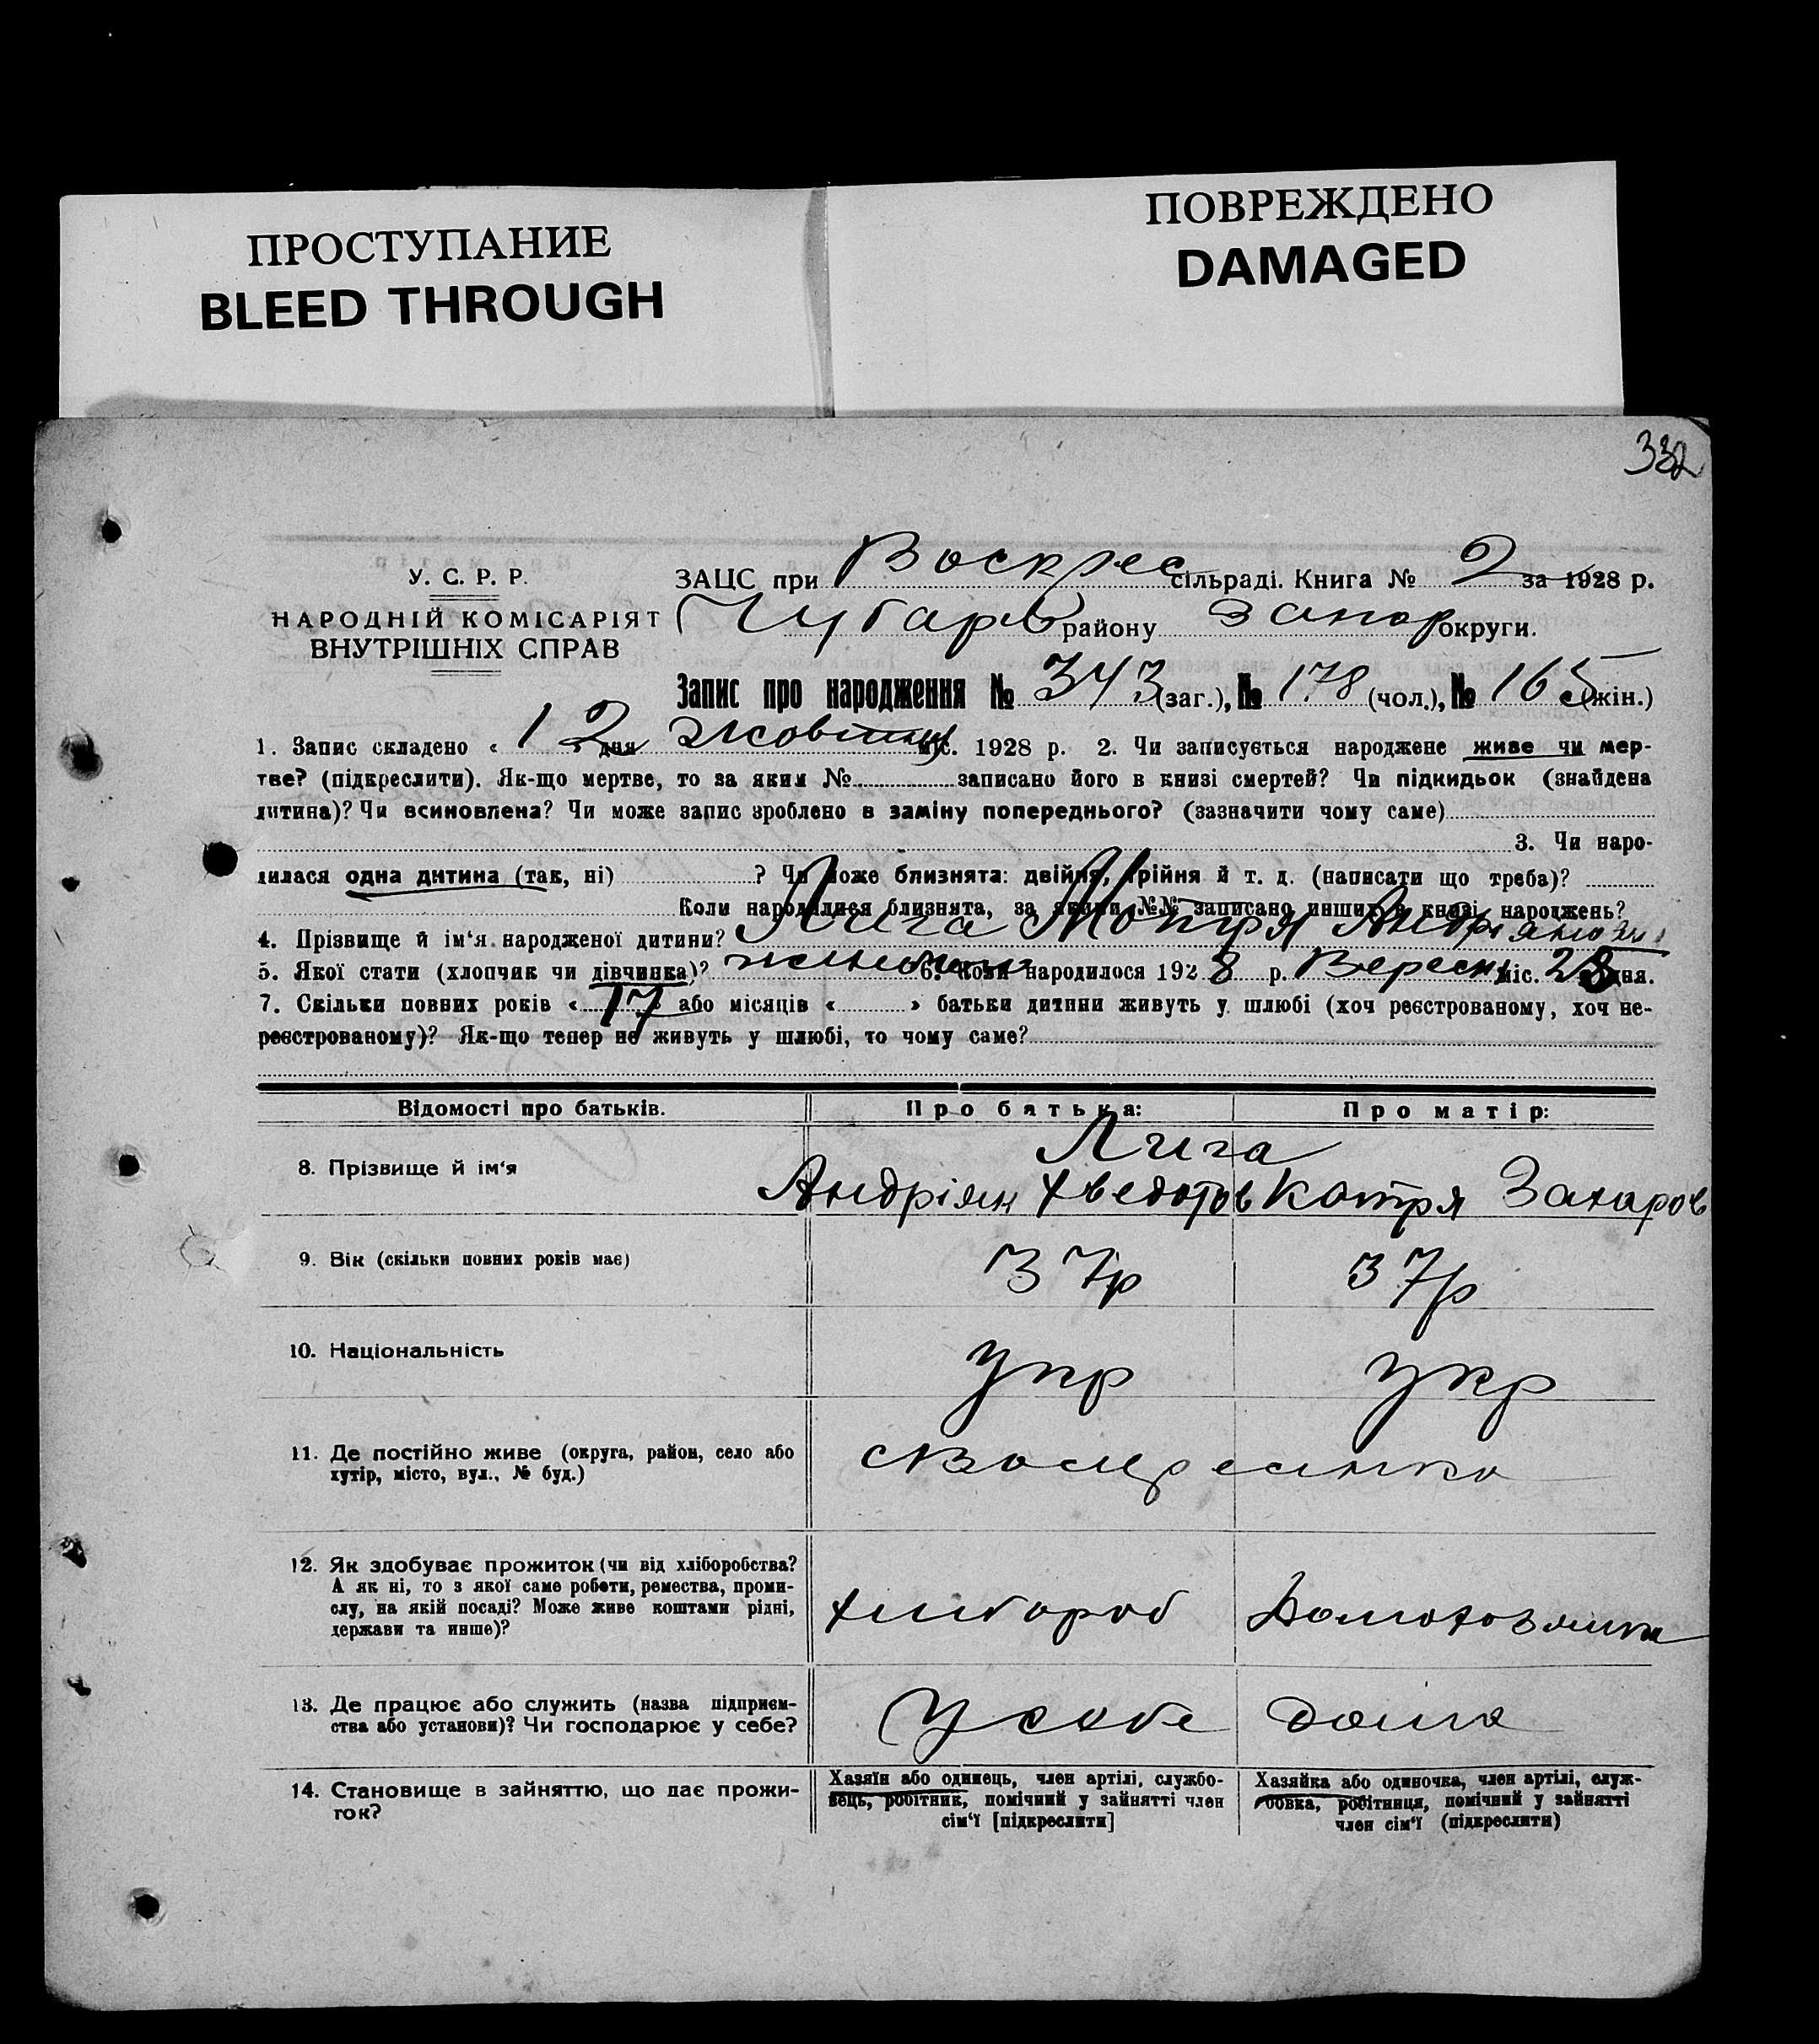 ПРОСТУПАНИЕ
BLEED THROUGH
ПОВРЕЖДЕНО
DAMAGED
332
У. С. Р. Р.
НАРОДНІЙ КОМІСАРІЯТ
ВНУТРІШНІХ СПРАВ
ЗАЦС при Воскрес сільраді. Книга № 2 за 1928 р.
Чубарів району Запор округи.
Запис про народження № 343 (заг.), № 178 (чол.), № 165 (жін.)
1. Запис складено « 12 » дня Жовтня міс. 1928 р. 2. Чи записується народжене живе чи мер-
тве? (підкреслити). Як-що мертве, то за яким № записано його в книзі смертей? Чи підкидьок (знайдена
дитина)? Чи всиновлена? Чи може запис зроблено в заміну попереднього? (зазначити чому саме)
3. Чи наро-
дилася одна дитина (так, ні) ? Чи може близнята: двійня, трійня й т. д. (написати що треба)?
Коли народилися близнята, за якими №№ записано инших в книзі народжень?
4. Прізвище й ім‘я народженої дитини? Лига Мотря Андріянова
5. Якої стати (хлопчик чи дівчинка)? 6. Коли народилося 1928 р. Вересня міс. 28 дня.
7. Скільки повних років « 17 » або місяців « » батьки дитини живуть у шлюбі (хоч реєстрованому, хоч не-
реєстрованому)? Як-що тепер не живуть у шлюбі, то чому саме?
Відомості про батьків. Про батька: Про матір:
Лига
8. Прізвище й ім‘я Андріян Хведотов Котря Захаров
9. Вік (скільки повних років має) 37р 37р
10. Національність укр укр
11. Де постійно живе (округа, район, село або
хутір, місто, вул., № буд.)
12. Як здобуває прожиток (чи від хліборобства?
А як ні, то з якої саме роботи, ремества, проми-
слу, на якій посаді? Може живе коштами рідні,
держави та инше)?
хлибороб Домохозяйка
13. Де працює або служить (назва підприєм-
ства або установи)? Чи господарює у себе?
У себе дома
14. Становище в зайняттю, що дає прожи-
ток?
Хазяїн або одинець, член артілі, службо-
вець, робітник, помічний у зайнятті член
сім‘ї [підкреслити]
Хазяйка або одиночка, член артілі, служ-
бовка, робітниця, помічний у зайнятті
член сім‘ї (підкреслити)